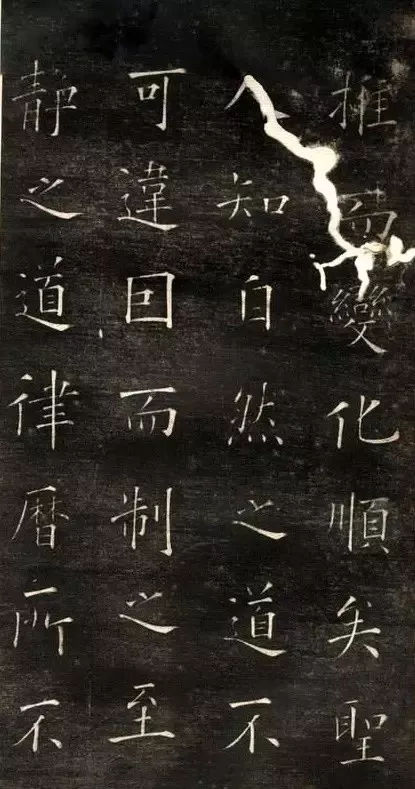 推而變化順矣聖
人知自然之道不
可違囙而制之至
靜之道律曆所不